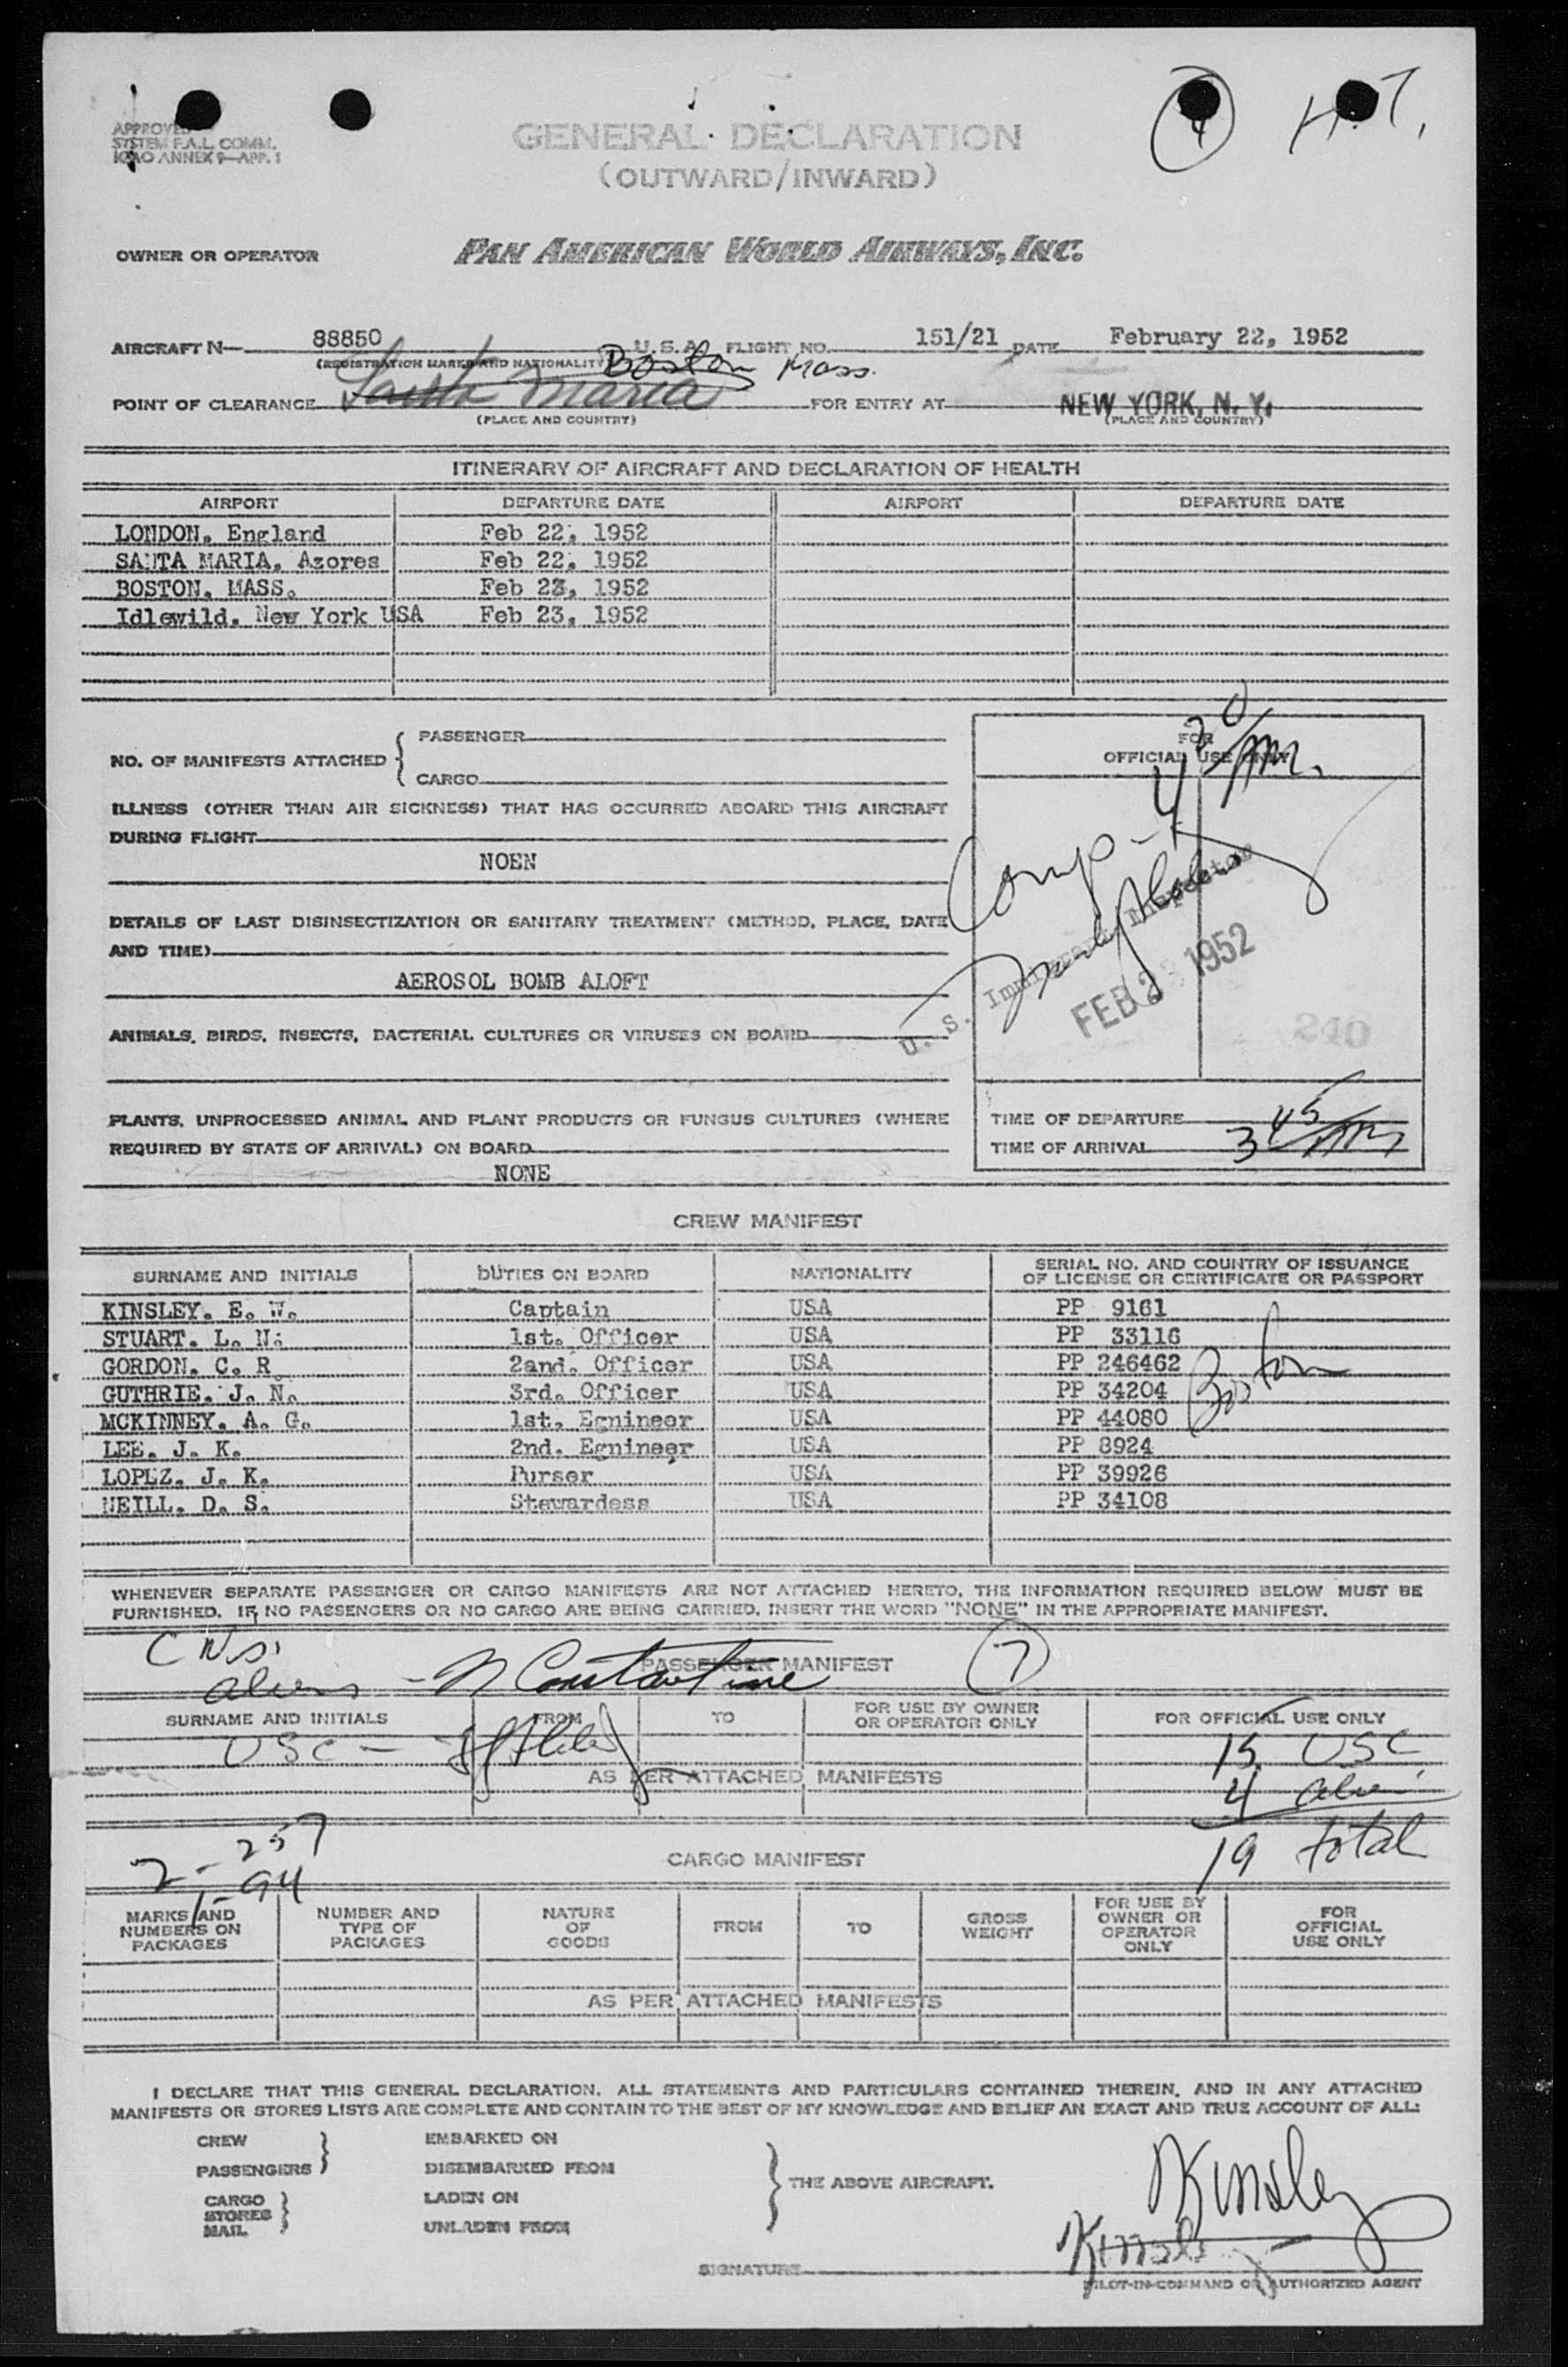 APPROVED
SYSTEM F.A.L. COMM.
ICAO ANNEX 9—APP. 1
4 H.T.
GENERAL DECLARATION
(OUTWARD/INWARD)
OWNER OR OPERATOR PAN AMERICAN WORLD AIRWAYS, INC.
AIRCRAFT N— 88850 U.S.A. FLIGHT NO. 151/21 DATE February 22, 1952
(REGISTRATION MARKS AND NATIONALITY) Boston Mass.
POINT OF CLEARANCE Santa Maria FOR ENTRY AT NEW YORK, N. Y.
(PLACE AND COUNTRY) (PLACE AND COUNTRY)
ITINERARY OF AIRCRAFT AND DECLARATION OF HEALTH
AIRPORT DEPARTURE DATE AIRPORT DEPARTURE DATE
LONDON, England Feb 22, 1952
SANTA MARIA, Azores Feb 22, 1952
BOSTON, MASS. Feb 23, 1952
Idlewild, New York USA Feb 23, 1952
NO. OF MANIFESTS ATTACHED { PASSENGER
CARGO
FOR
OFFICIAL USE ONLY
ILLNESS (OTHER THAN AIR SICKNESS) THAT HAS OCCURRED ABOARD THIS AIRCRAFT
DURING FLIGHT
NOEN
Comp - 4 20
DETAILS OF LAST DISINSECTIZATION OR SANITARY TREATMENT (METHOD, PLACE, DATE
AND TIME)
AEROSOL BOMB ALOFT
U. S. Immigrant Inspector
FEB 23 1952
240
ANIMALS, BIRDS, INSECTS, BACTERIAL CULTURES OR VIRUSES ON BOARD
PLANTS, UNPROCESSED ANIMAL AND PLANT PRODUCTS OR FUNGUS CULTURES (WHERE
REQUIRED BY STATE OF ARRIVAL) ON BOARD
NONE
TIME OF DEPARTURE
TIME OF ARRIVAL 3 45
CREW MANIFEST
SURNAME AND INITIALS DUTIES ON BOARD NATIONALITY SERIAL NO. AND COUNTRY OF ISSUANCE
OF LICENSE OR CERTIFICATE OR PASSPORT
KINSLEY. E. W. Captain USA PP 9161
STUART. L. N. 1st. Officer USA PP 33116
GORDON. C. R 2and. Officer USA PP 246462
GUTHRIE. J. N. 3rd. Officer USA PP 34204
MCKINNEY. A. G. 1st. Egnineer USA PP 44080
LEE. J. K. 2nd. Egnineer USA PP 8924
LOPEZ. J. K. Purser USA PP 39926
NEILL. D. S. Stewardess USA PP 34108
Boston
WHENEVER SEPARATE PASSENGER OR CARGO MANIFESTS ARE NOT ATTACHED HERETO, THE INFORMATION REQUIRED BELOW MUST BE
FURNISHED. IF NO PASSENGERS OR NO CARGO ARE BEING CARRIED, INSERT THE WORD "NONE" IN THE APPROPRIATE MANIFEST.
PASSENGER MANIFEST 7
aliens - N Constantine
SURNAME AND INITIALS FROM TO FOR USE BY OWNER
OR OPERATOR ONLY FOR OFFICIAL USE ONLY
USC - 15 USC
AS PER ATTACHED MANIFESTS
4 alien
19 total
2 - 257
1 - 94
CARGO MANIFEST
MARKS AND
NUMBERS ON
PACKAGES
NUMBER AND
TYPE OF
PACKAGES
NATURE
OF
GOODS
FROM
TO
GROSS
WEIGHT
FOR USE BY
OWNER OR
OPERATOR
ONLY
FOR
OFFICIAL
USE ONLY
AS PER ATTACHED MANIFESTS
I DECLARE THAT THIS GENERAL DECLARATION, ALL STATEMENTS AND PARTICULARS CONTAINED THEREIN, AND IN ANY ATTACHED
MANIFESTS OR STORES LISTS ARE COMPLETE AND CONTAIN TO THE BEST OF MY KNOWLEDGE AND BELIEF AN EXACT AND TRUE ACCOUNT OF ALL:
CREW EMBARKED ON
PASSENGERS DISEMBARKED FROM
THE ABOVE AIRCRAFT.
CARGO LADEN ON
STORES
MAIL UNLADEN FROM
Kinsley
Kinsley
SIGNATURE
PILOT-IN-COMMAND OR AUTHORIZED AGENT